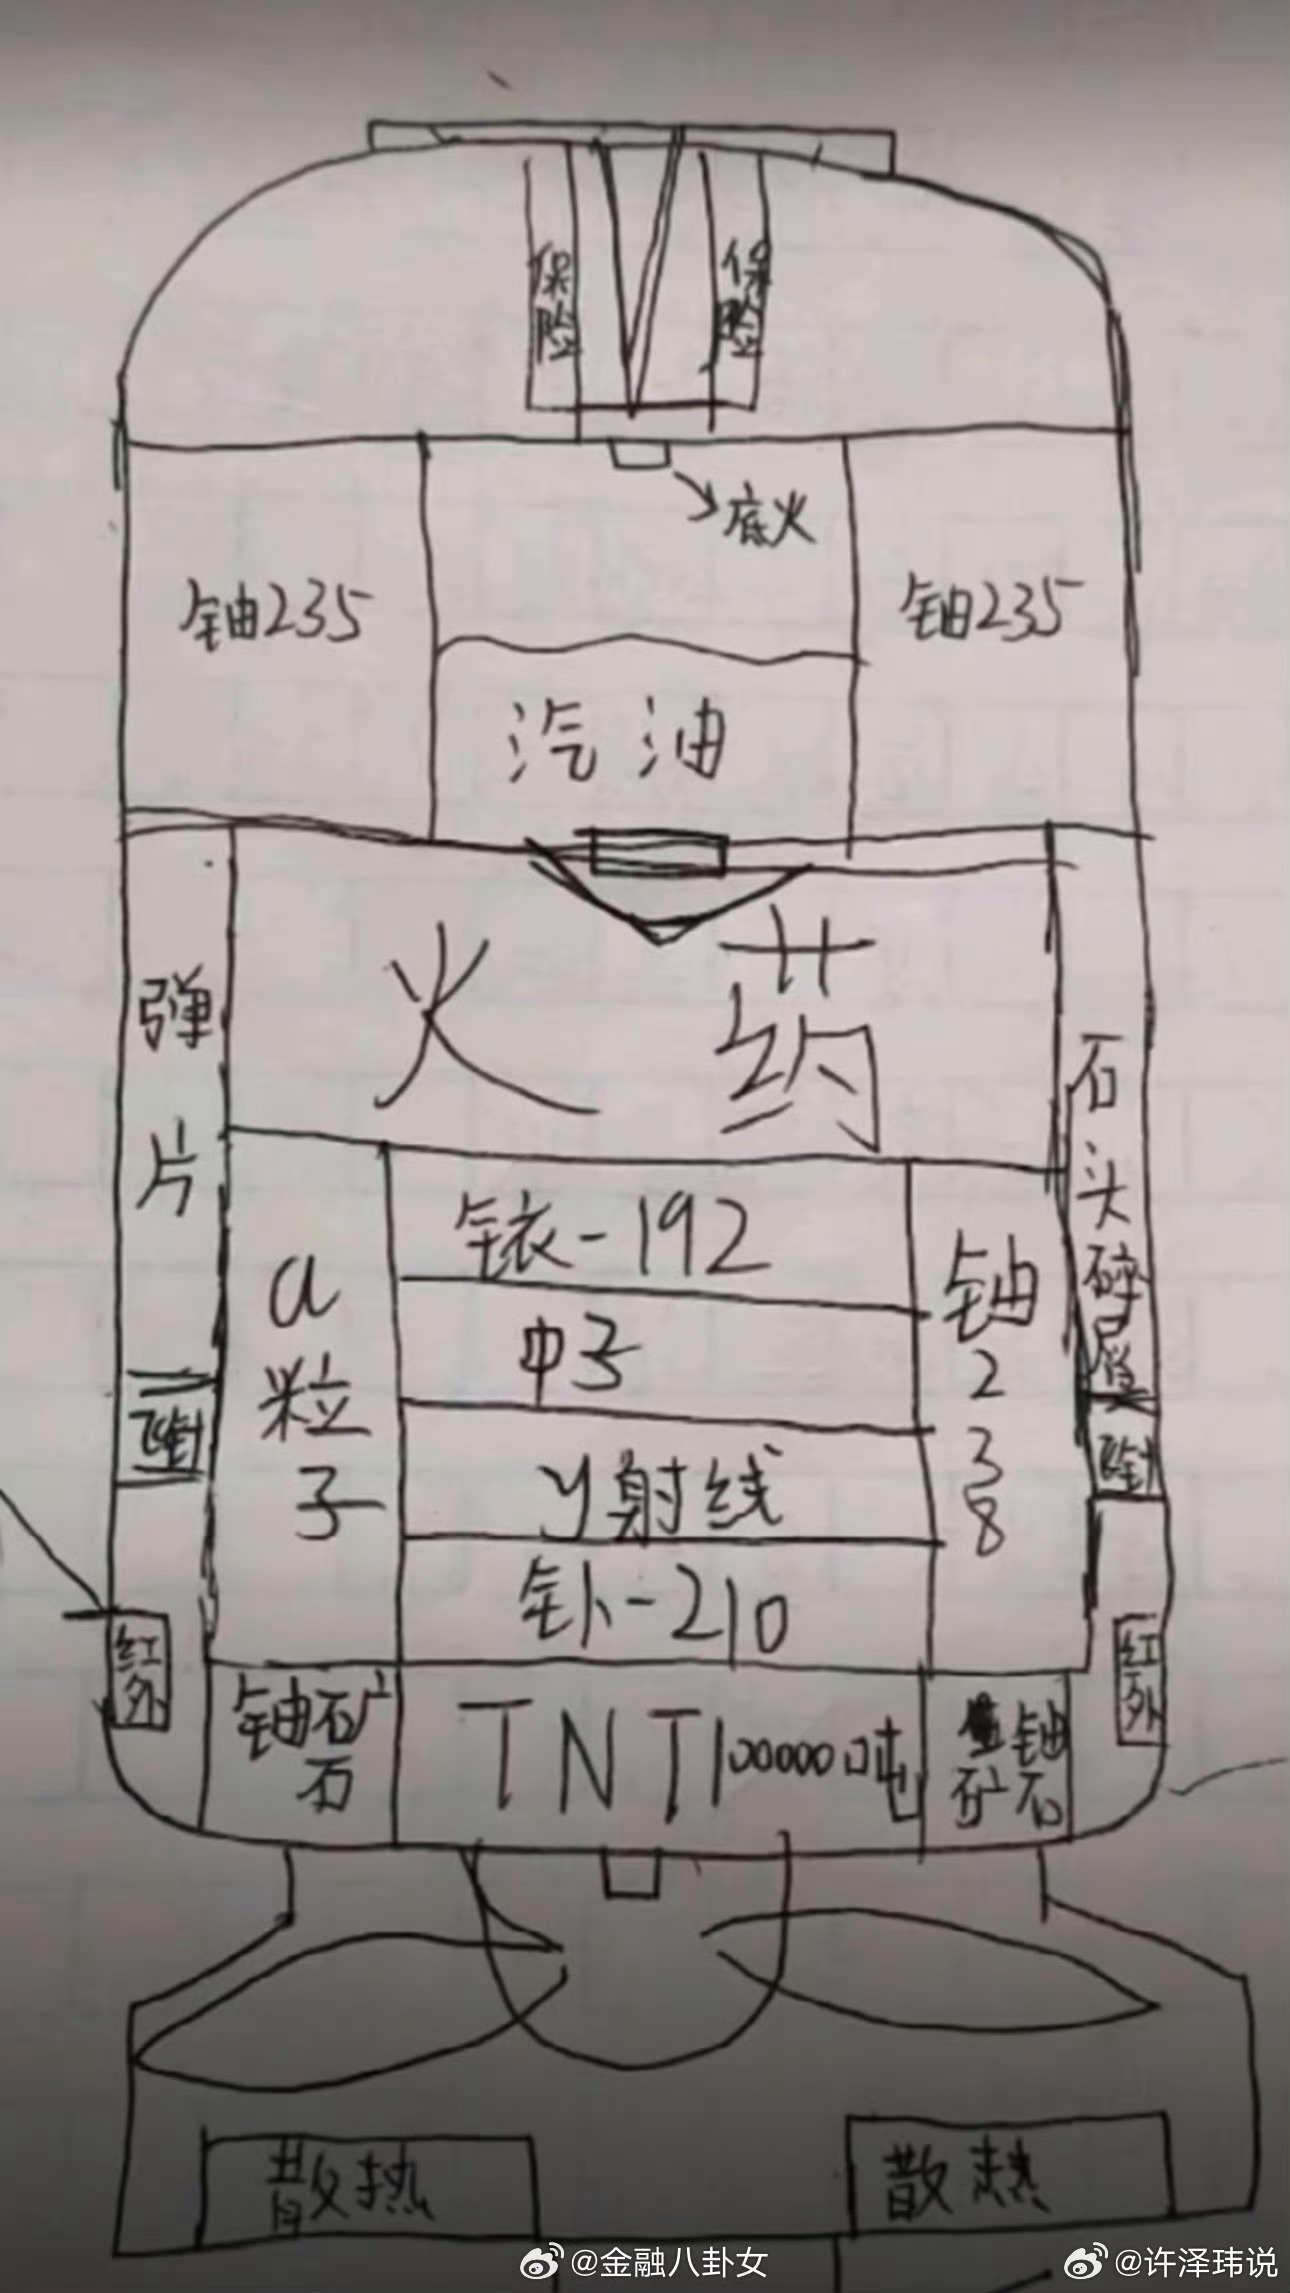 保险
保险
底火
铀235
铀235
汽油
火药
弹片
石头碎屑
铱-192
α粒子
中子
铀238
γ射线
钋-210
红外
红外
铀矿石
TNT100000吨
铀矿石
散热
散热
@金融八卦女
@许泽玮说